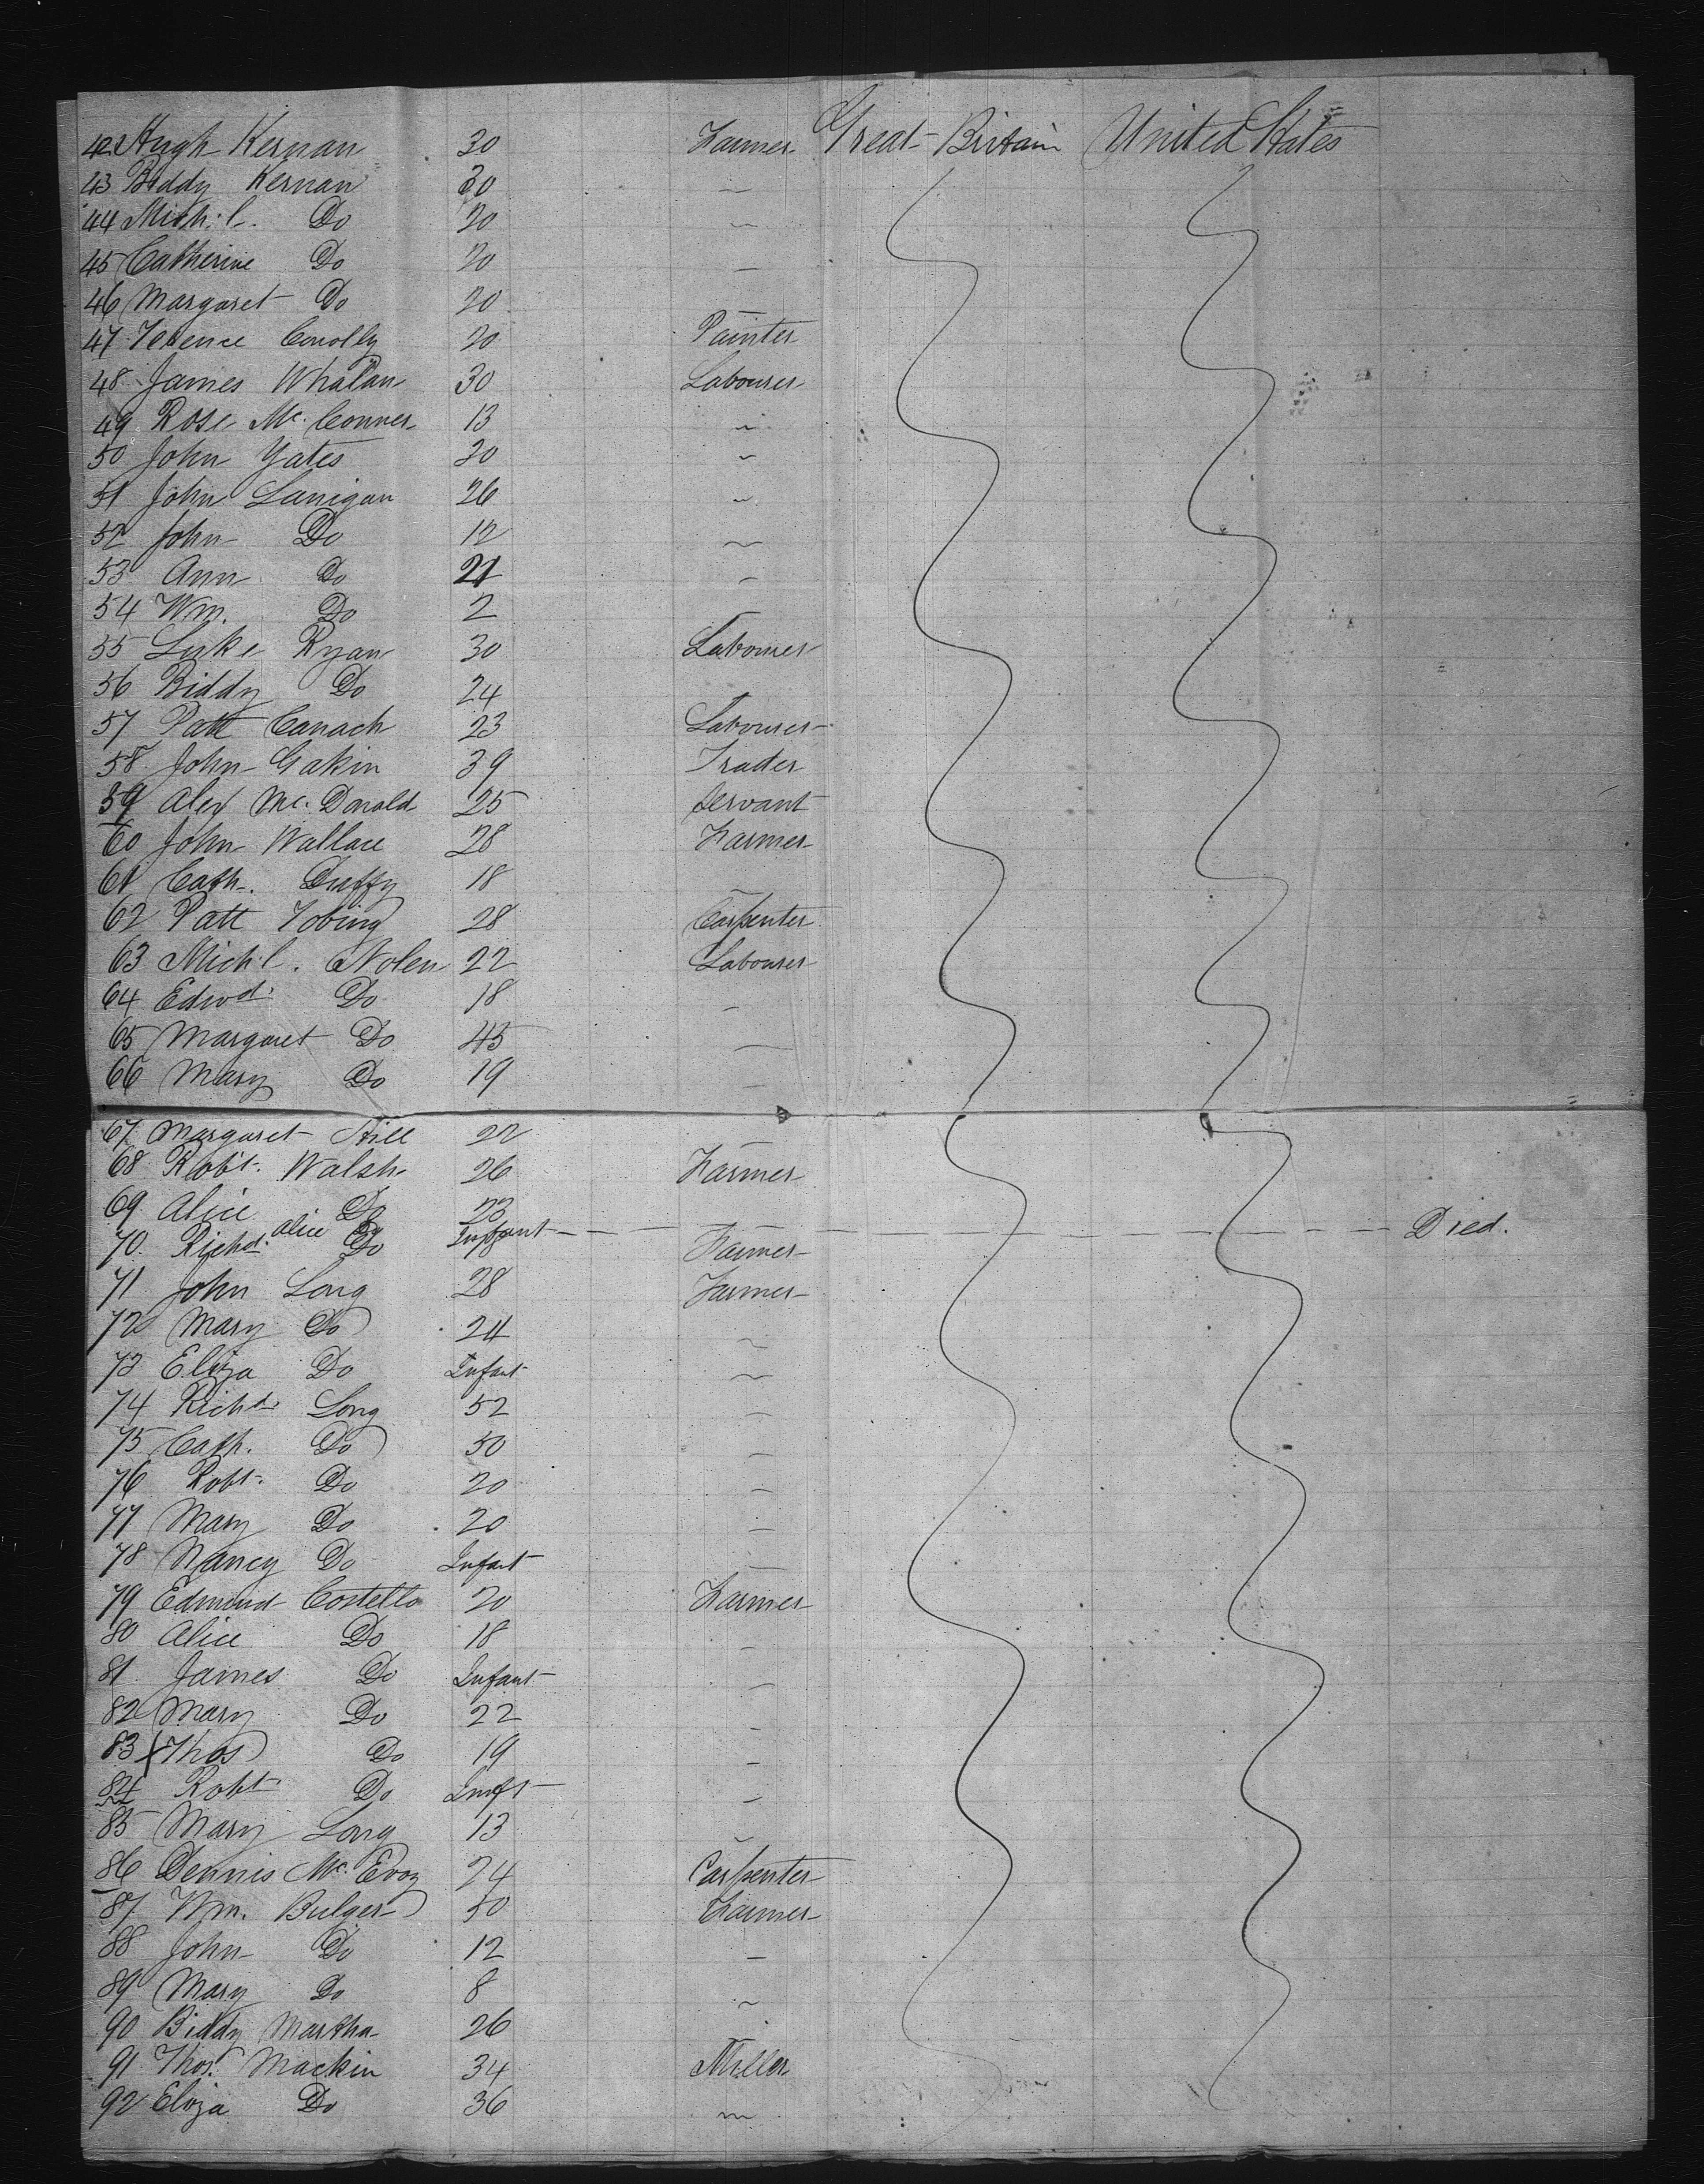 42 Hugh Kernan 30 Farmer Great Britain United States
43 Biddy Kernan 30 —
44 Mich'l. Do 20 —
45 Catherine Do 20 —
46 Margaret Do 20 —
47 Terence Conolly 20 Painter
48 James Whalan 30 Labourer
49 Rose Mc. Conner 13 —
50 John Yates 20 —
51 John Lanigan 26 —
52 John Do 12 —
53 Ann Do 21 —
54 Wm. Do 2 —
55 Luke Ryan 30 Labourer
56 Biddy Do 24 —
57 Patt Canach 23 Labourer
58 John Gakin 39 Trader
59 Alex Mc. Donald 25 Servant
60 John Wallace 28 Farmer
61 Cath. Duffy 18 —
62 Patt Tobing 28 Carpenter
63 Mich'l. Nolen 22 Labourer
64 Edwd. Do 18 —
65 Margaret Do 45 —
66 Mary Do 19 —
67 Margaret Hill 22 —
68 Rob't. Walsh 26 Farmer
69 Alice Do 23 —
Alice Do Infant — — — Died.
70 Richd. Do Farmer
71 John Long 28 Farmer
72 Mary Do 24 —
73 Eliza Do Infant —
74 Richd. Long 52 —
75 Cath. Do 50 —
76 Robt. Do 20 —
77 Mary Do 20 —
78 Nancy Do Infant —
79 Edmund Costello 20 Farmer
80 Alice Do 18 —
81 James Do Infant —
82 Mary Do 22 —
83 Thos Do 19 —
84 Robt Do Inft —
85 Mary Long 13 —
86 Dennis Mc. Evoy 24 Carpenter
87 Wm. Bulger 50 Farmer
88 John Do 12 —
89 Mary Do 8 —
90 Biddy Martha 26 —
91 Thos. Mackin 34 Miller
92 Eliza Do 36 —